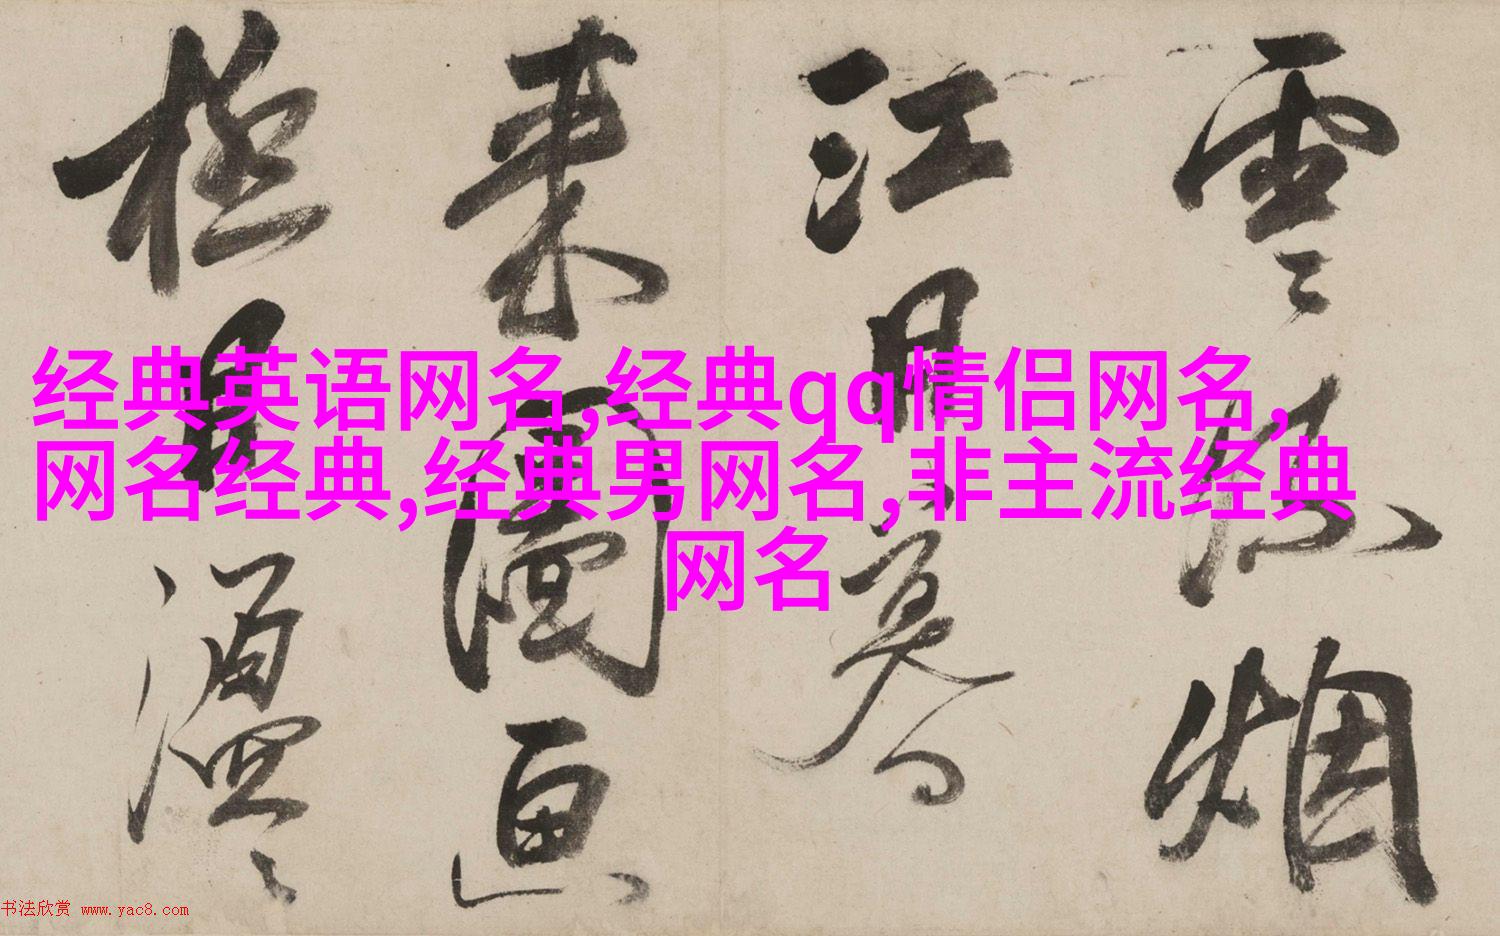 雲烟
江月
来圖画
極目
经典英语网名,经典qq情侣网名,
网名经典,经典男网名,非主流经典
网名
书法欣赏 www.yac8.com